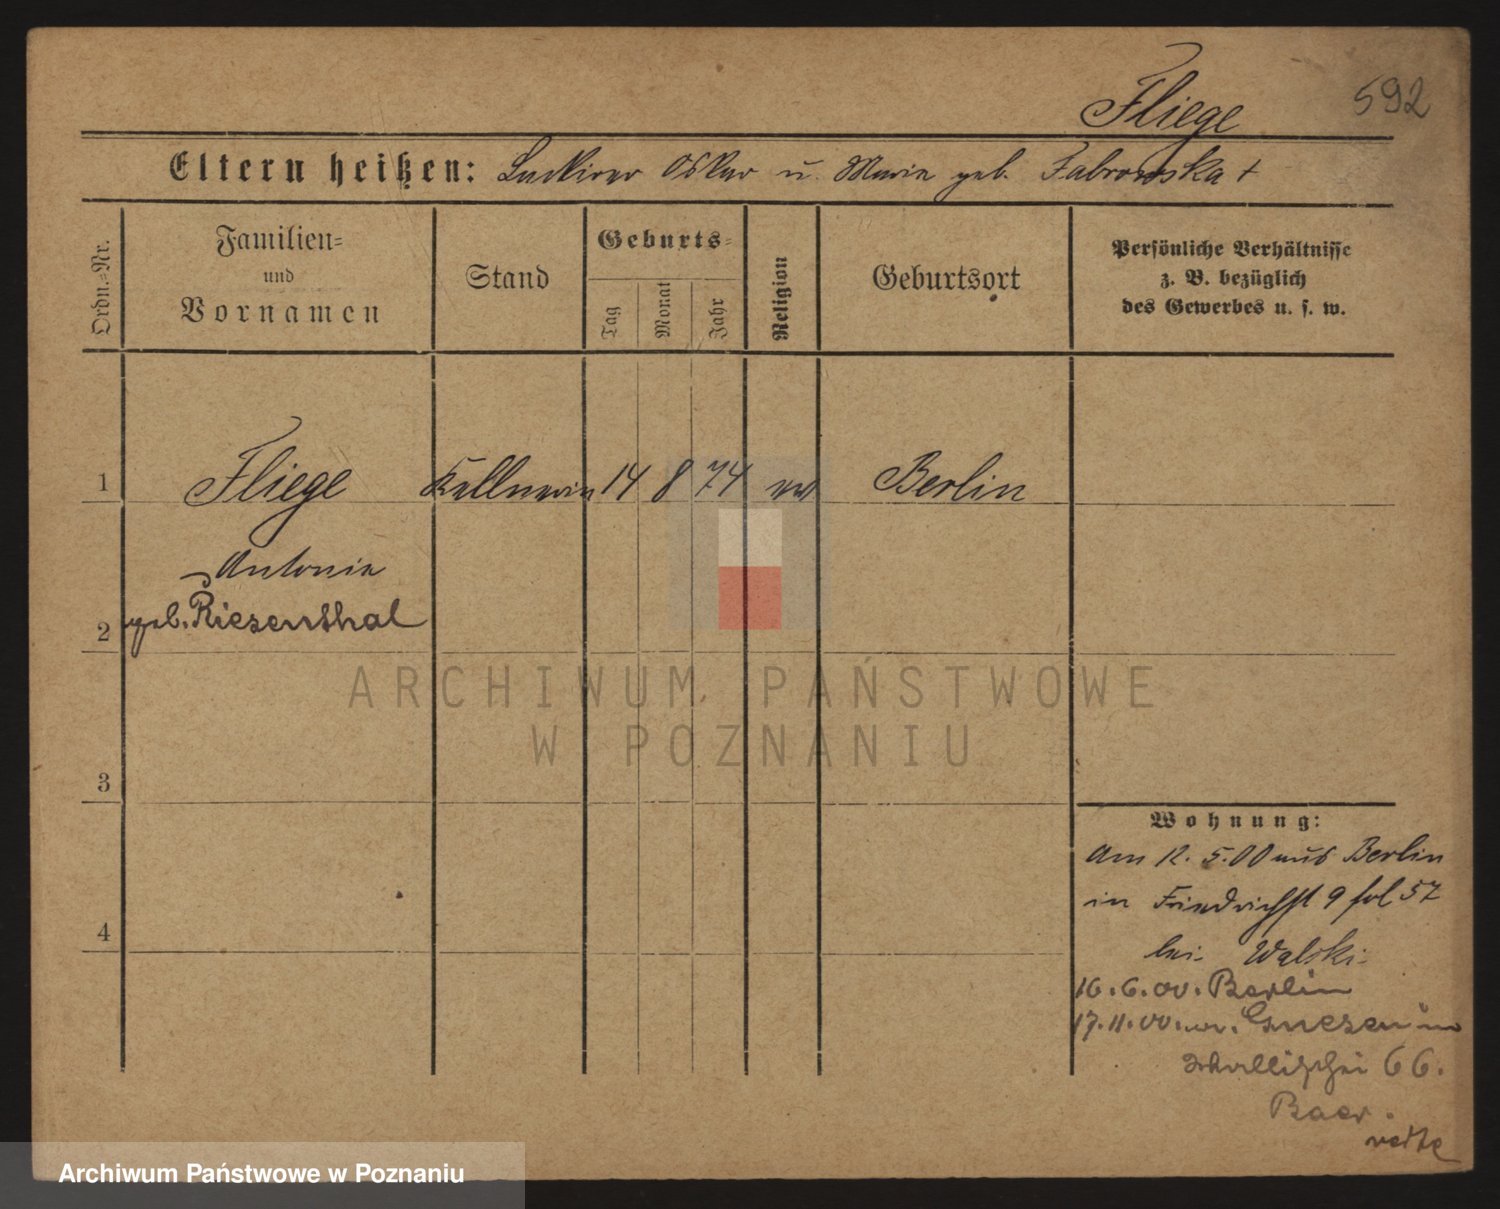 Fliege
592
Eltern heißen: Lackirer Oskar u. Maria geb. Fabrowska +
Ordn.=Nr.
Familien=
und
Vornamen
Stand
Geburts=
Tag
Monat
Jahr
Religion
Geburtsort
Persönliche Verhältnisse
z. B. bezüglich
des Gewerbes u. s. w.
1
Fliege
Kellnerin
14
8
74
ev
Berlin
Antonie
2
geb. Riesenthal
ARCHIWUM PAŃSTWOWE
W POZNANIU
3
4
Wohnung:
Am 12. 5.00 aus Berlin
in Friedrichst 9 fol 57
bei Walski
16.6.00. Berlin
17.11.00. Gnesen in
66.
Baer.
Archiwum Państwowe w Poznaniu